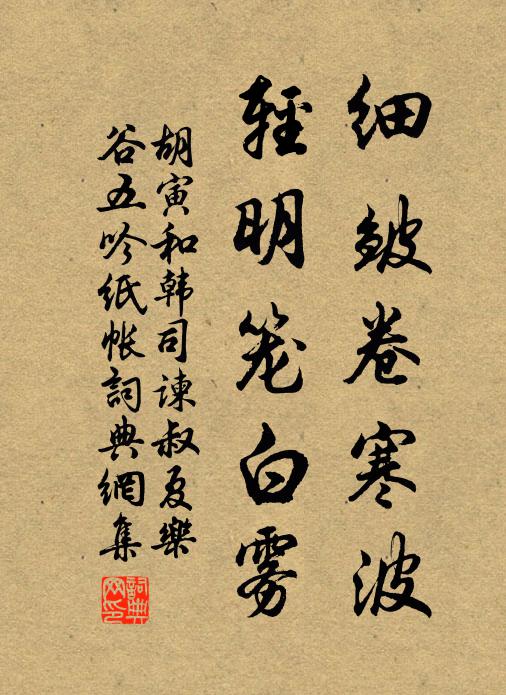 细皴卷寒波
轻明笼白雾
胡寅和韩司諫叔夏樂
谷五吟纸帐詞典網集
詞典网印